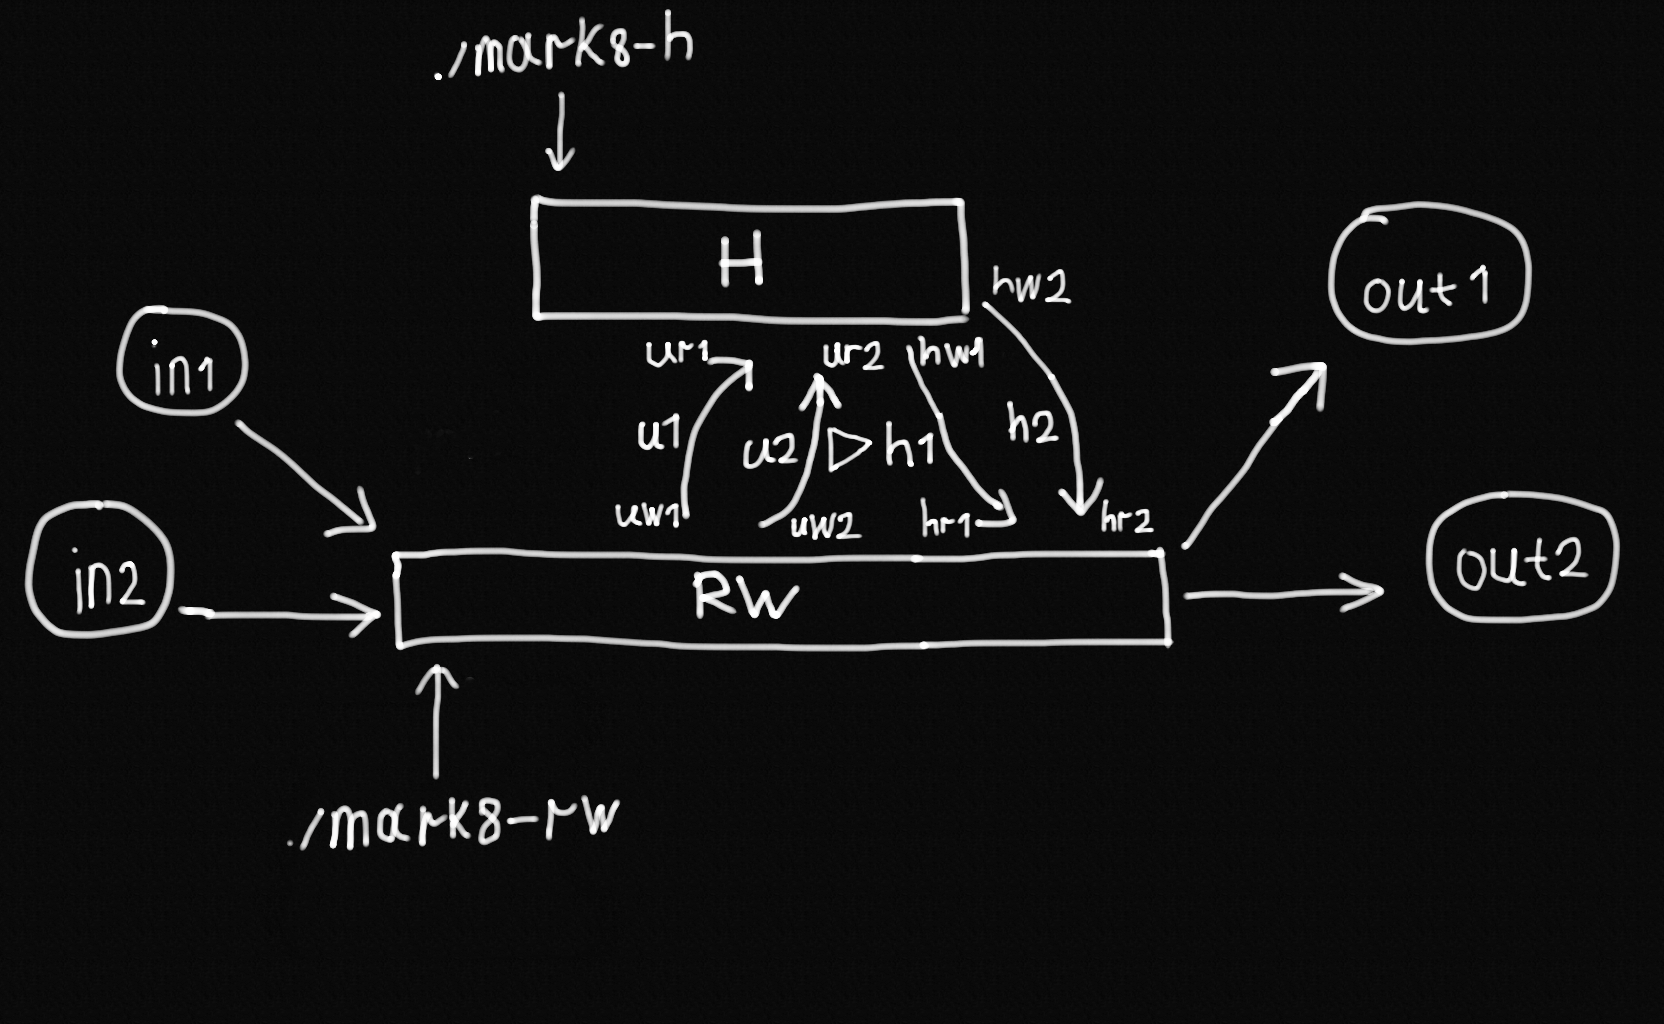 ./mark8-h
H
hw2
out1
in1
ur1
ur2
hw1
u1
u2
h1
h2
uw1
uw2
hr1
hr2
in2
RW
out2
./mark8-rw